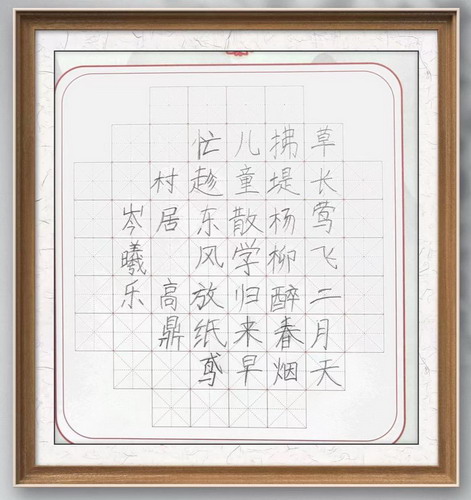 草长莺飞二月天
拂堤杨柳醉春烟
儿童散学归来早
忙趁东风放纸鸢
村居
高鼎
岑曦乐